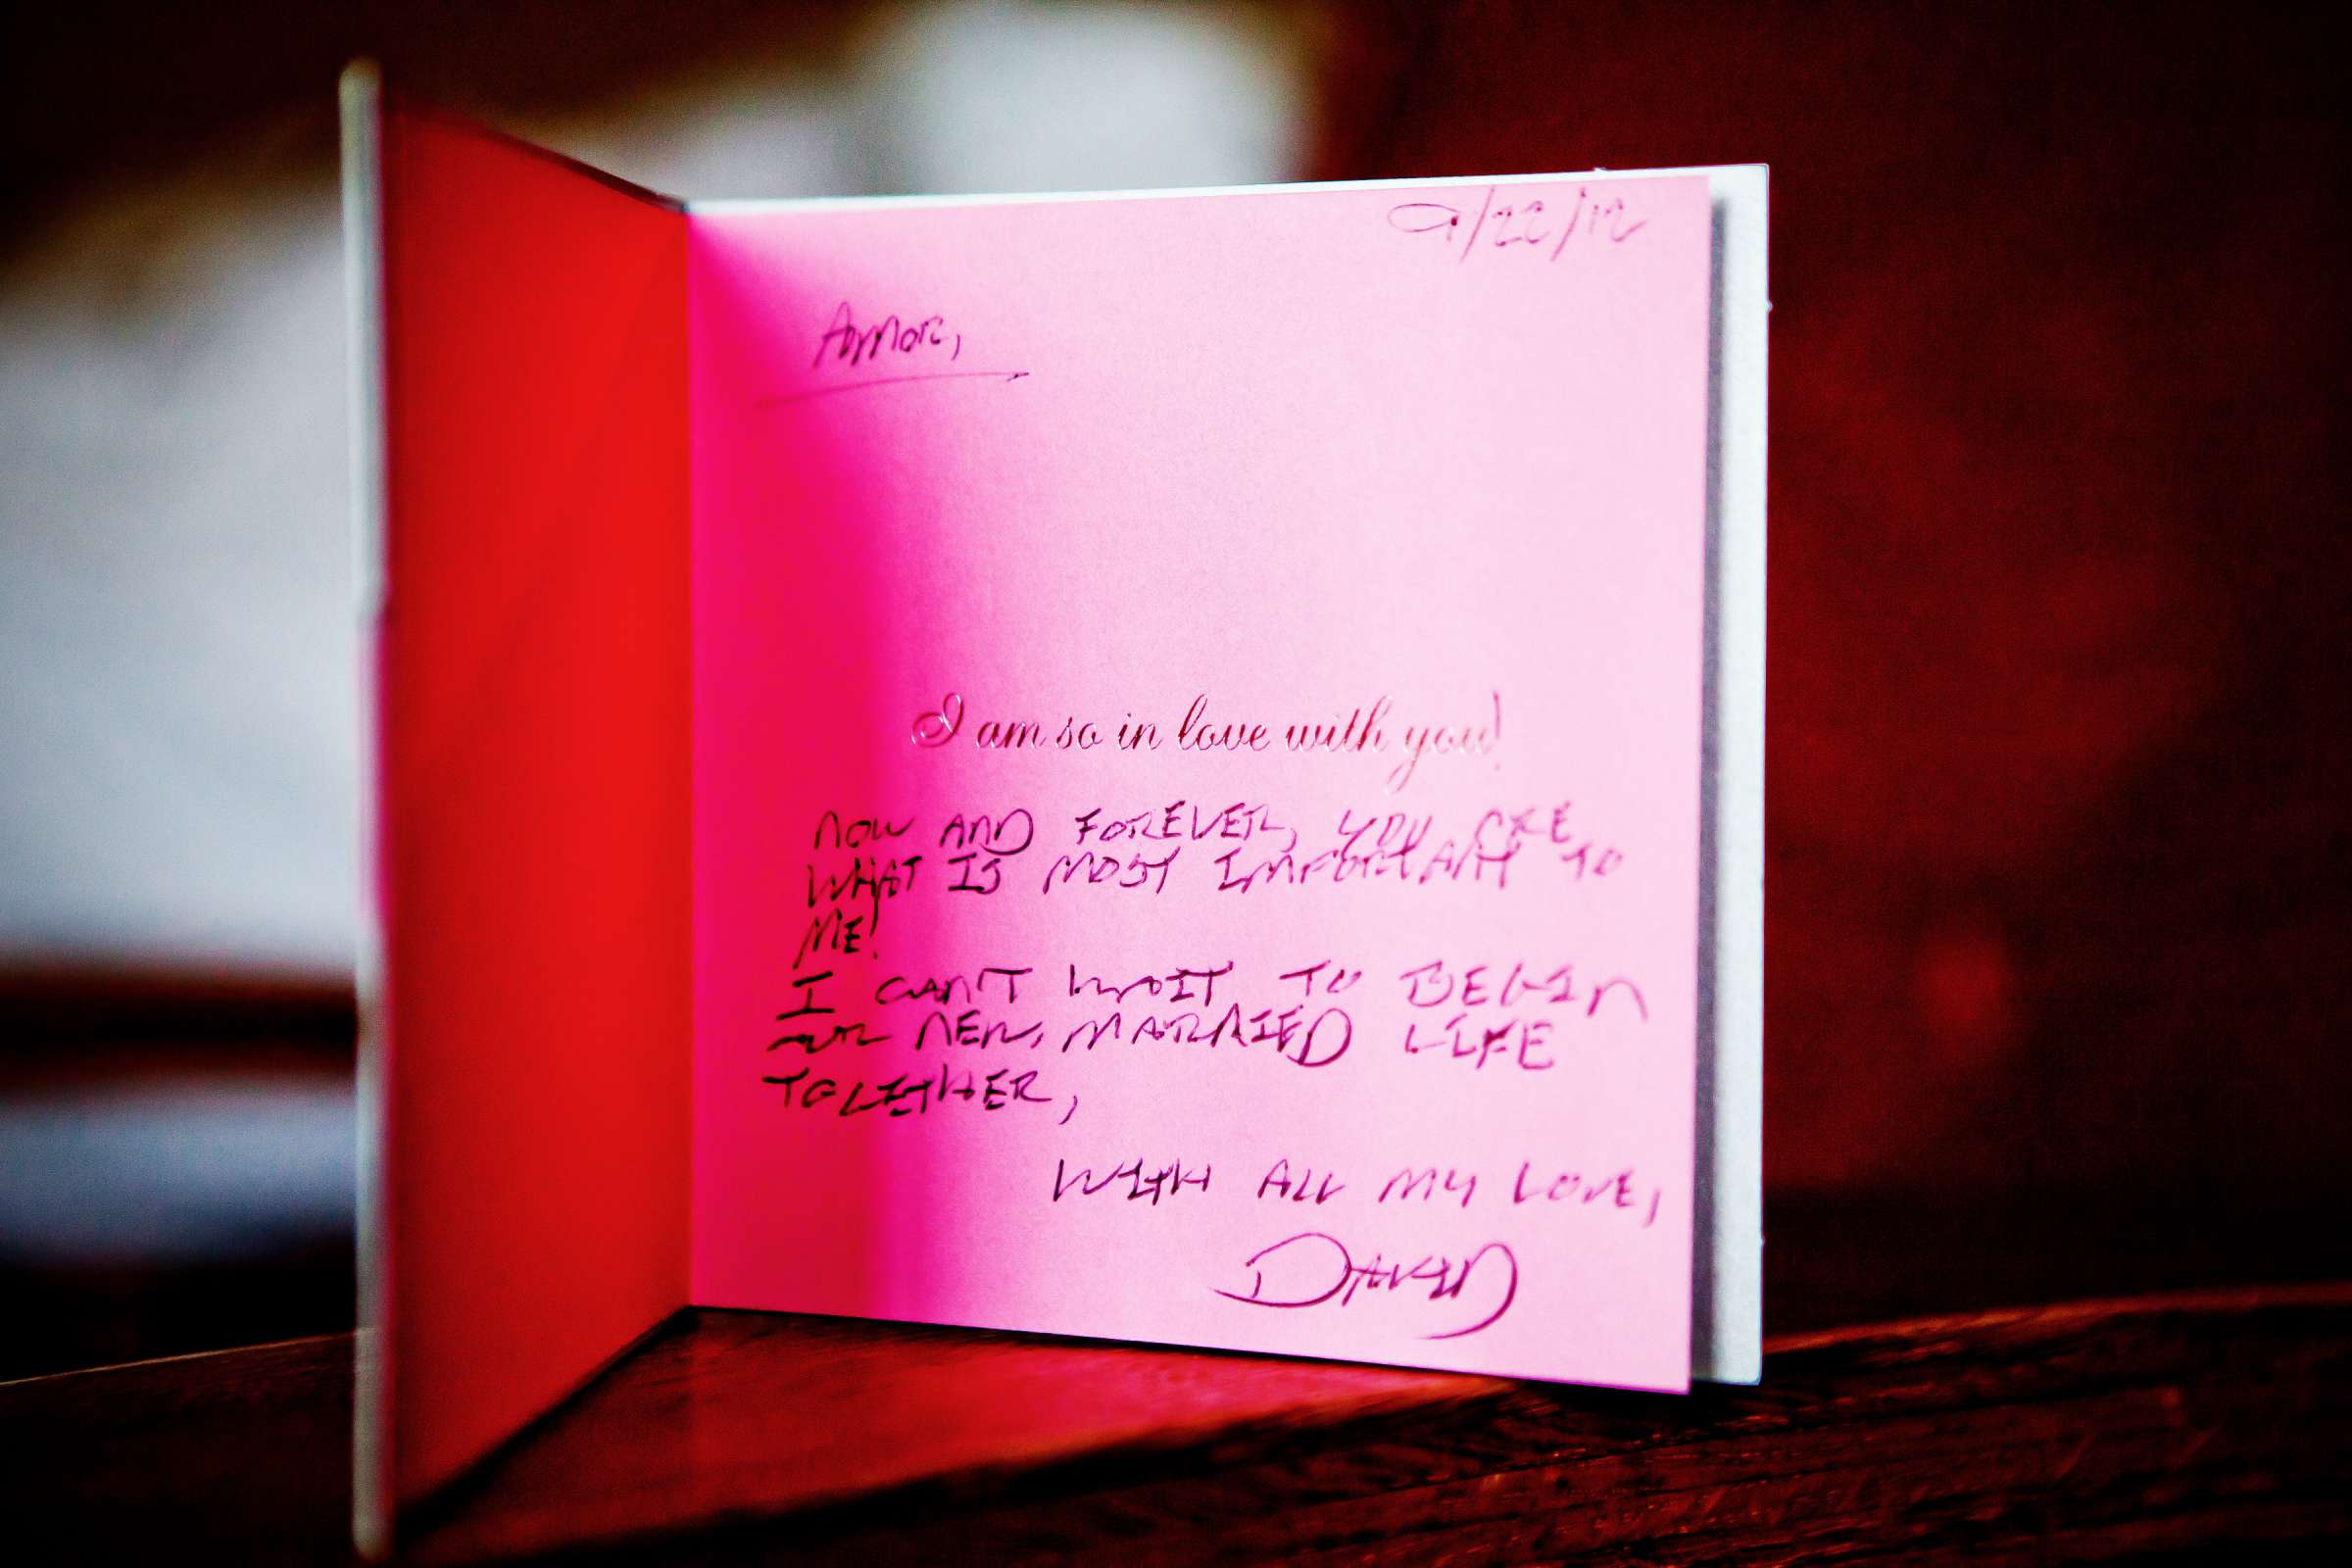 9/22/12
Amor,
I am so in love with you!
NOW AND FOREVER, YOU ARE
WHAT IS MOST IMPORTANT TO
ME!
I CAN'T WAIT TO BEGIN
OUR NEW, MARRIED LIFE
TOGETHER,
WITH ALL MY LOVE,
DAVID